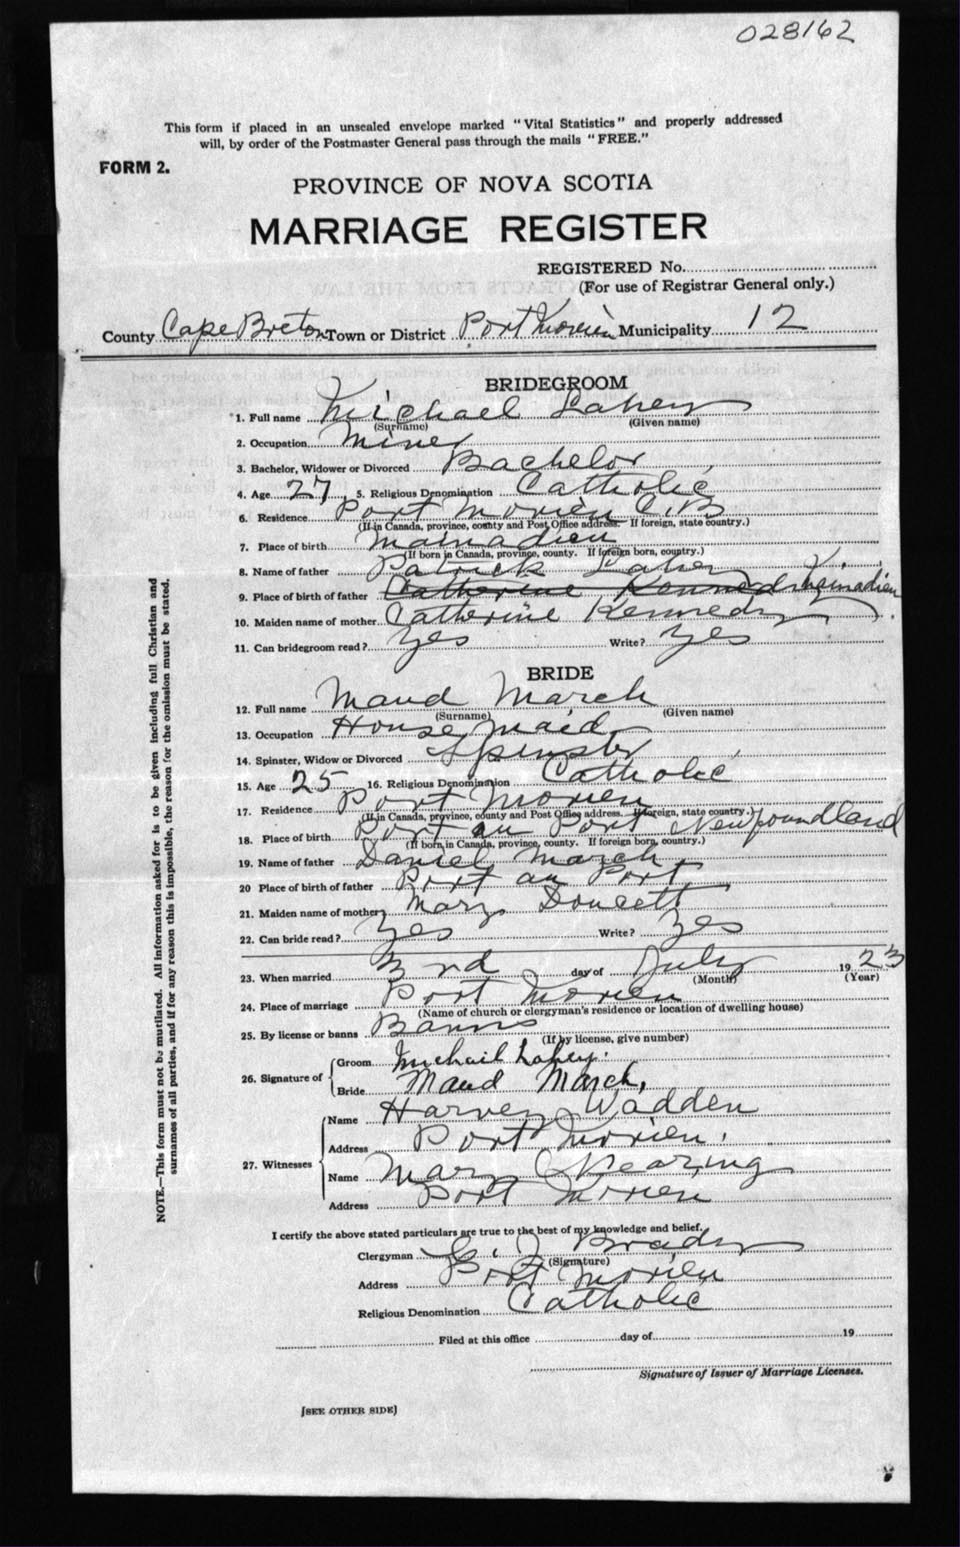 028162
This form if placed in an unsealed envelope marked "Vital Statistics" and properly addressed
will, by order of the Postmaster General pass through the mails "FREE."
FORM 2.
PROVINCE OF NOVA SCOTIA
MARRIAGE REGISTER
REGISTERED No.
(For use of Registrar General only.)
County Cape Breton Town or District Port Morien Municipality 12
BRIDEGROOM
1. Full name Michael Lahey
(Surname) (Given name)
2. Occupation Miner
3. Bachelor, Widower or Divorced Bachelor
4. Age 27 5. Religious Denomination Catholic
6. Residence Port Morien C.B
(If in Canada, province, county and Post Office address. If foreign, state country.)
7. Place of birth Mainadieu
(If born in Canada, province, county. If foreign born, country.)
8. Name of father Patrick Lahey
9. Place of birth of father Catherine Kennedy Mainadieu
10. Maiden name of mother Catherine Kennedy
11. Can bridegroom read? Yes Write? Yes
BRIDE
12. Full name Maud March
(Surname) (Given name)
13. Occupation House maid
14. Spinster, Widow or Divorced Spinster
15. Age 25 16. Religious Denomination Catholic
17. Residence Port Morien
(If in Canada, province, county and Post Office address. If foreign, state country.)
18. Place of birth Port au Port Newfoundland
(If born in Canada, province, county. If foreign born, country.)
19. Name of father Daniel March
20 Place of birth of father Port au Port
21. Maiden name of mother Mary Doucett
22. Can bride read? Yes Write? Yes
23. When married 3rd day of July 1923
(Month) (Year)
24. Place of marriage Port Morien
(Name of church or clergyman's residence or location of dwelling house)
25. By license or banns Banns
(If by license, give number)
26. Signature of
Groom Michail Lahey.
Bride Maud March,
27. Witnesses
Name Harvey Wadden
Address Port Morien.
Name Mary Shearing
Address Port Morien
I certify the above stated particulars are true to the best of my knowledge and belief.
Clergyman Brady
(Signature)
Address Port Morien
Religious Denomination Catholic
Filed at this office day of 19
Signature of Issuer of Marriage Licenses.
[SEE OTHER SIDE]
NOTE.—This form must not be mutilated. All information asked for is to be given including full Christian and
surnames of all parties, and if for any reason this is impossible, the reason for the omission must be stated.